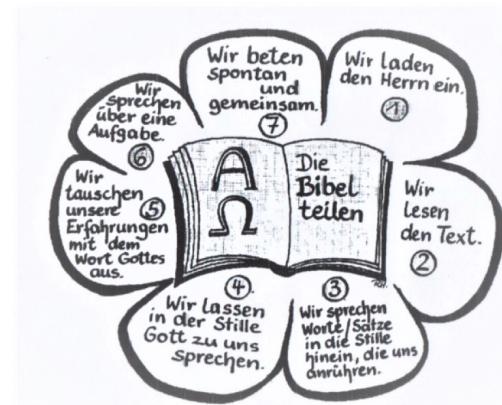 Wir laden
den Herrn ein.
1
Wir
lesen
den Text.
2
3
Wir sprechen
Worte/Sätze
in die Stille
hinein, die uns
anrühren.
4.
Wir lassen
in der Stille
Gott zu uns
sprechen.
Wir
tauschen
unsere 5
Erfahrungen
mit dem
Wort Gottes
aus.
Wir
sprechen
über eine
Aufgabe.
6
Wir beten
spontan
und
gemeinsam.
7
Α
Ω
Die
Bibel
teilen